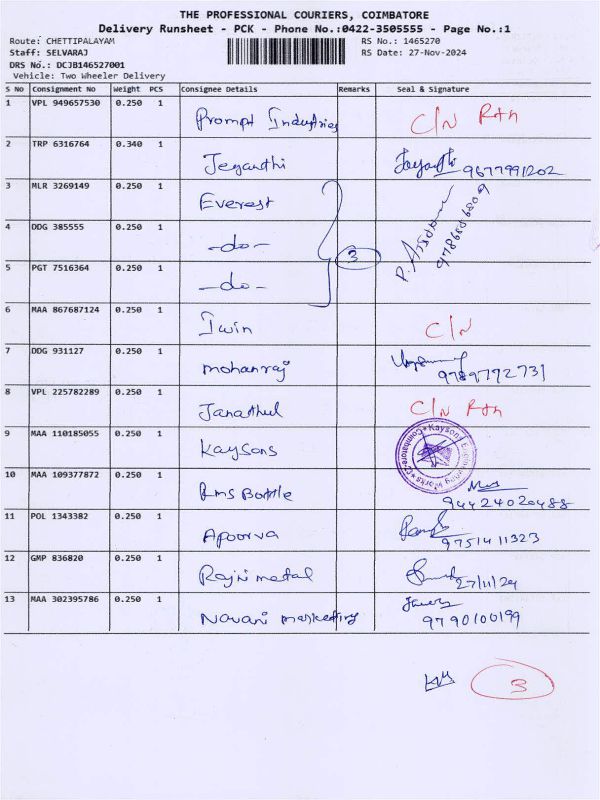 THE PROFESSIONAL COURIERS, COIMBATORE
Delivery Runsheet - PCK - Phone No.:0422-3505555 - Page No.:1
Route: CHETTIPALAYAM RS No.: 1465270
Staff: SELVARAJ RS Date: 27-Nov-2024
DRS No.: DCJB146527001
Vehicle: Two Wheeler Delivery
S No Consignment No Weight PCS Consignee Details Remarks Seal & Signature
1 VPL 949657530 0.250 1 Prompt Industries C/N Rtn
2 TRP 6316764 0.340 1 Jeyanthi Jayanthi 9677991202
3 MLR 3269149 0.250 1 Everest
4 DDG 385555 0.250 1 -do- 3
5 PGT 7516364 0.250 1 -do-
6 MAA 867687124 0.250 1 Twin C/N
7 DDG 931127 0.250 1 mohanraj 9789772731
8 VPL 225782289 0.250 1 Janathul C/N Rtn
9 MAA 110185055 0.250 1 Kaysons Kaysons Engineering Works Coimbatore
10 MAA 109377872 0.250 1 Rms Bottle 94424020488
11 POL 1343382 0.250 1 Apoorva 9751411323
12 GMP 836820 0.250 1 Rajni metal 27/11/24
13 MAA 302395786 0.250 1 Navani marketing 9790100199
3